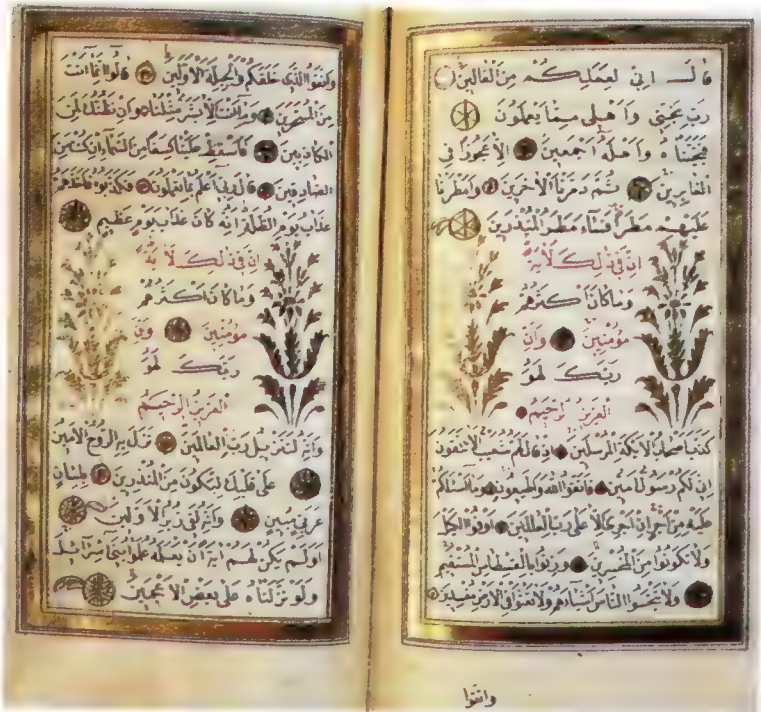 قال اني لعملكم من القالين
رب نجني واهلي مما يعملون
فنجيناه واهله اجمعين الا عجوزا في
الغابرين ثم دمرنا الاخرين وامطرنا
عليهم مطرا فساء مطر المنذرين
ان في ذلك لاية
وما كان اكثرهم
مؤمنين وان
ربك لهو
العزيز الرحيم
كذب اصحاب الايكة المرسلين اذ قال لهم شعيب الا تتقون
اني لكم رسول امين فاتقوا الله واطيعون وما اسئلكم
عليه من اجر ان اجري الا على رب العالمين اوفوا الكيل
ولا تكونوا من المخسرين وزنوا بالقسطاس المستقيم
ولا تبخسوا الناس اشياءهم ولا تعثوا في الارض مفسدين
واتقوا
واتقوا الذي خلقكم والجبلة الاولين قالوا انما انت
من المسحرين وما انت الا بشر مثلنا وان نظنك لمن
الكاذبين فاسقط علينا كسفا من السماء ان كنت من
الصادقين قال ربي اعلم بما تعملون فكذبوه فاخذهم
عذاب يوم الظلة انه كان عذاب يوم عظيم
ان في ذلك لاية
وما كان اكثرهم
مؤمنين وان
ربك لهو
العزيز الرحيم
وانه لتنزيل رب العالمين نزل به الروح الامين
على قلبك لتكون من المنذرين بلسان
عربي مبين وانه لفي زبر الاولين
اولم يكن لهم اية ان يعلمه علموا بني اسرائيل
ولو نزلناه على بعض الاعجمين